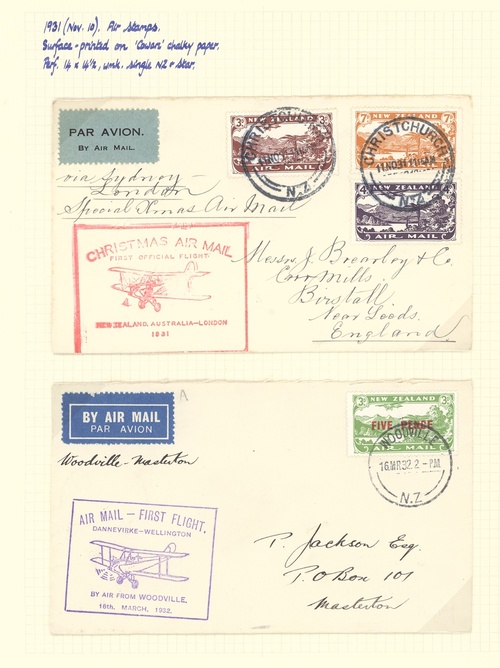 1931 (Nov. 10). Air stamps.
Surface-printed on 'Cowan' chalky paper.
Perf. 14 x 14½, wmk. single NZ & star.
PAR AVION.
BY AIR MAIL.
via Sydney -
London
Special Xmas Air Mail
3D NEW ZEALAND 3D
AIR MAIL
CHRISTCHURCH
N.Z
7D NEW ZEALAND 7D
CHRISTCHURCH
11NO31 11-AM
N.Z
4D NEW ZEALAND 4D
AIR MAIL
CHRISTMAS AIR MAIL
FIRST OFFICIAL FLIGHT.
NEW ZEALAND, AUSTRALIA-LONDON
1931
Messrs. J. Brearley & Co.
Carr Mills.
Birstall.
Near Leeds.
England.
BY AIR MAIL
PAR AVION
Woodville - Masterton
3D NEW ZEALAND 3D
FIVE PENCE
AIR MAIL
WOODVILLE
16MR32 2-PM
N.Z
AIR MAIL - FIRST FLIGHT.
DANNEVIRKE-WELLINGTON
BY AIR FROM WOODVILLE,
16th. MARCH, 1932.
P. Jackson Esq.
P.O Box 101
Masterton